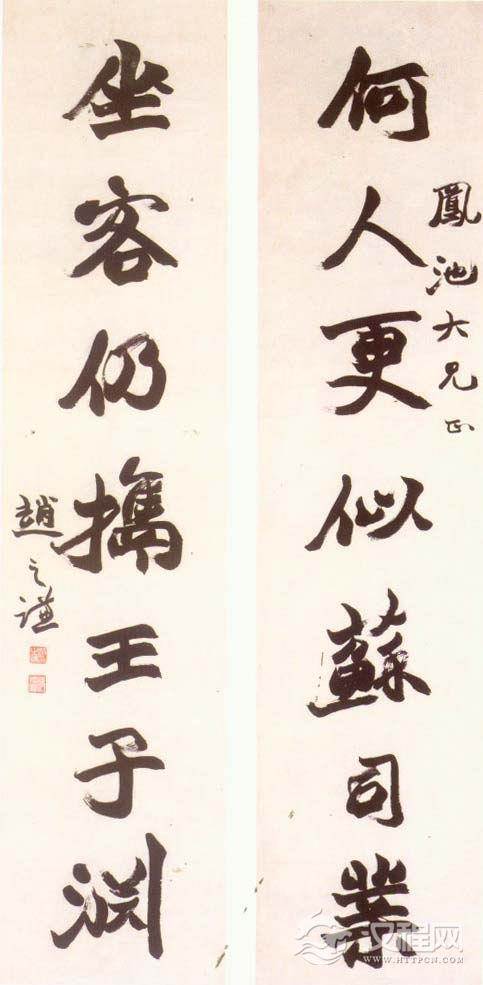 何人更似蘇司業
鳳池大兄正
坐客仍攜王子淵
趙之謙
汉程网
WWW.HTTPCN.COM